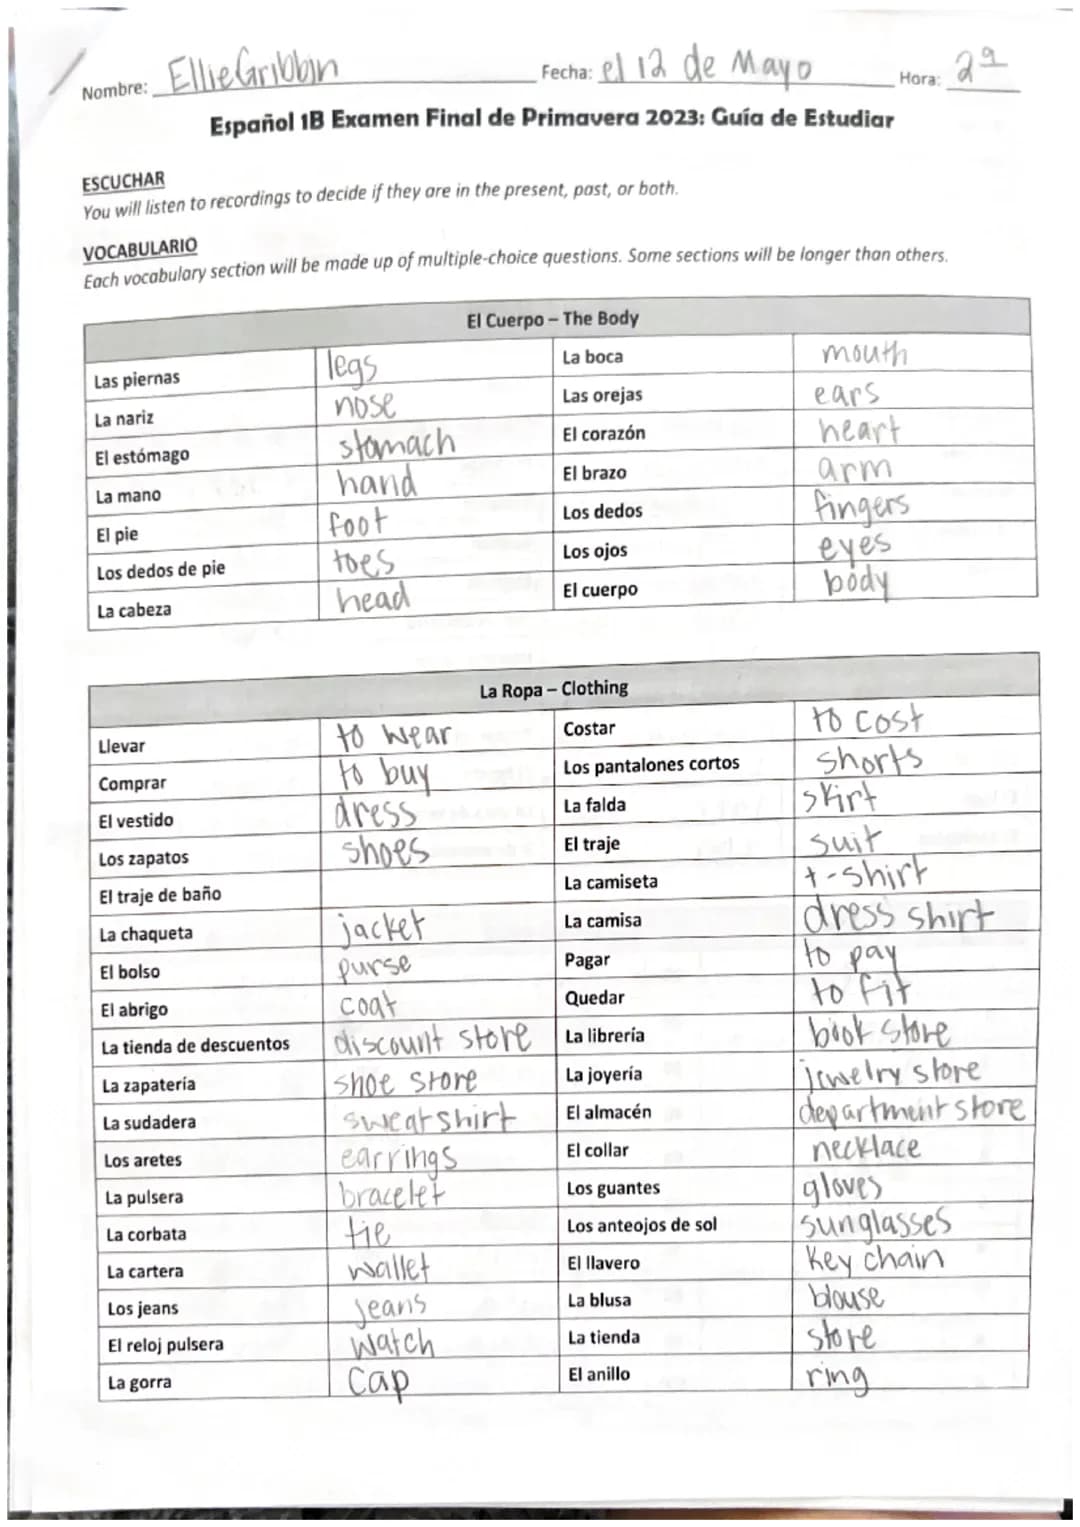 Nombre: Ellie Gribbin Fecha: el 12 de Mayo Hora: 2ª
Español 1B Examen Final de Primavera 2023: Guía de Estudiar
ESCUCHAR
You will listen to recordings to decide if they are in the present, past, or both.
VOCABULARIO
Each vocabulary section will be made up of multiple-choice questions. Some sections will be longer than others.
El Cuerpo – The Body
Las piernas legs La boca mouth
La nariz nose Las orejas ears
El estómago stomach El corazón heart
La mano hand El brazo arm
El pie foot Los dedos fingers
Los dedos de pie toes Los ojos eyes
La cabeza head El cuerpo body
La Ropa – Clothing
Llevar to wear Costar to cost
Comprar to buy Los pantalones cortos shorts
El vestido dress La falda skirt
Los zapatos shoes El traje suit
El traje de baño La camiseta t-shirt
La chaqueta jacket La camisa dress shirt
El bolso purse Pagar to pay
El abrigo coat Quedar to fit
La tienda de descuentos discount store La librería book store
La zapatería shoe store La joyería jewelry store
La sudadera sweatshirt El almacén department store
Los aretes earrings El collar necklace
La pulsera bracelet Los guantes gloves
La corbata tie Los anteojos de sol sunglasses
La cartera wallet El llavero key chain
Los jeans jeans La blusa blouse
El reloj pulsera watch La tienda store
La gorra cap El anillo ring